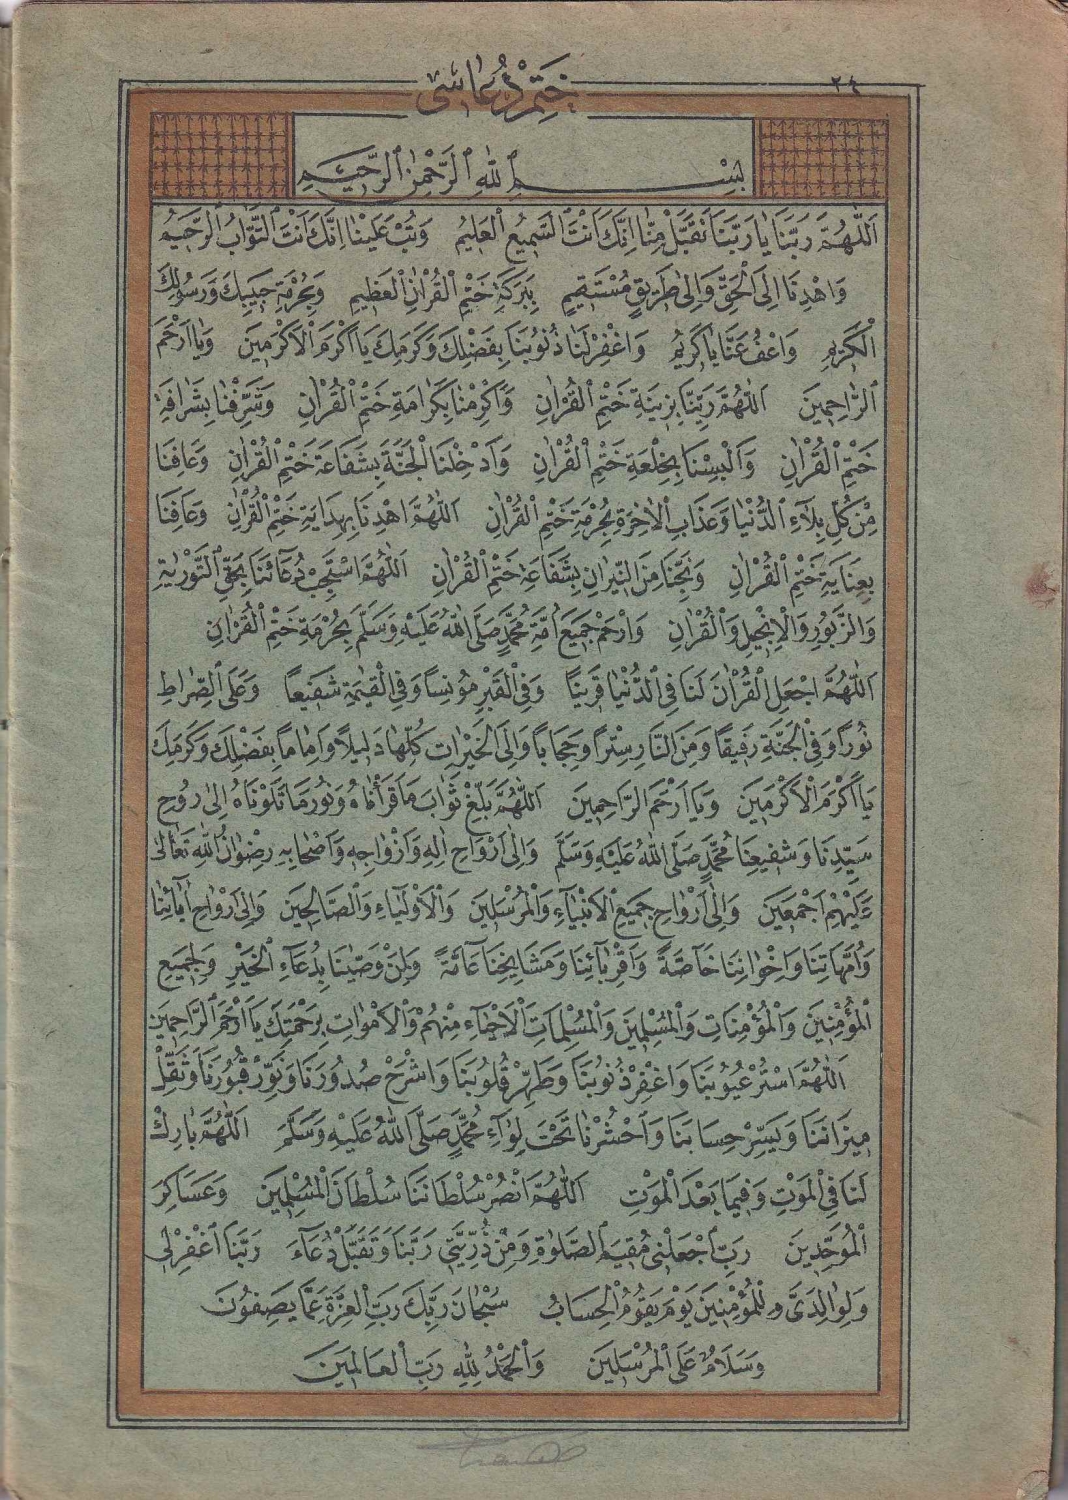 ختم دعاسى
٢٤
بِسْمِ اللهِ الرَّحْمٰنِ الرَّحِيمِ
اَللّٰهُمَّ رَبَّنَا يَا رَبَّنَا تَقَبَّلْ مِنَّا اِنَّكَ اَنْتَ السَّمِيعُ الْعَلِيمُ وَتُبْ عَلَيْنَا اِنَّكَ اَنْتَ التَّوَّابُ الرَّحِيمُ
وَاهْدِنَا اِلَى الْحَقِّ وَاِلٰى طَرِيقٍ مُسْتَقِيمٍ بِبَرَكَةِ خَتْمِ الْقُرْاٰنِ الْعَظِيمِ وَبِحُرْمَةِ حَبِيبِكَ وَرَسُولِكَ
الْكَرِيمِ وَاعْفُ عَنَّا يَا كَرِيمُ وَاغْفِرْ لَنَا ذُنُوبَنَا بِفَضْلِكَ وَكَرَمِكَ يَا اَكْرَمَ الْاَكْرَمِينَ وَيَا اَرْحَمَ
الرَّاحِمِينَ اَللّٰهُمَّ زَيِّنَّا بِزِينَةِ خَتْمِ الْقُرْاٰنِ وَاَكْرِمْنَا بِكَرَامَةِ خَتْمِ الْقُرْاٰنِ وَشَرِّفْنَا بِشَرَافَةِ
خَتْمِ الْقُرْاٰنِ وَاَلْبِسْنَا بِخِلْعَةِ خَتْمِ الْقُرْاٰنِ وَاَدْخِلْنَا الْجَنَّةَ بِشَفَاعَةِ خَتْمِ الْقُرْاٰنِ وَعَافِنَا
مِنْ كُلِّ بَلَاءِ الدُّنْيَا وَعَذَابِ الْاٰخِرَةِ بِحُرْمَةِ خَتْمِ الْقُرْاٰنِ اَللّٰهُمَّ اهْدِنَا بِهِدَايَةِ خَتْمِ الْقُرْاٰنِ وَعَافِنَا
بِعِنَايَةِ خَتْمِ الْقُرْاٰنِ وَنَجِّنَا مِنَ النِّيرَانِ بِشَفَاعَةِ خَتْمِ الْقُرْاٰنِ اَللّٰهُمَّ اسْتَجِبْ دُعَائَنَا بِحَقِّ التَّوْرٰيةِ
وَالزَّبُورِ وَالْاِنْجِيلِ وَالْقُرْاٰنِ وَارْحَمْ جَمِيعَ اُمَّةِ مُحَمَّدٍ صَلَّى اللهُ عَلَيْهِ وَسَلَّمَ بِحُرْمَةِ خَتْمِ الْقُرْاٰنِ
اَللّٰهُمَّ اجْعَلِ الْقُرْاٰنَ لَنَا فِى الدُّنْيَا قَرِينًا وَفِى الْقَبْرِ مُونِسًا وَفِى الْقِيٰمَةِ شَفِيعًا وَعَلَى الصِّرَاطِ
نُورًا وَفِى الْجَنَّةِ رَفِيقًا وَمِنَ النَّارِ سِتْرًا وَحِجَابًا وَاِلَى الْخَيْرَاتِ كُلِّهَا دَلِيلًا وَاِمَامًا بِفَضْلِكَ وَكَرَمِكَ
يَا اَكْرَمَ الْاَكْرَمِينَ وَيَا اَرْحَمَ الرَّاحِمِينَ اَللّٰهُمَّ بَلِّغْ ثَوَابَ مَا قَرَأْنَاهُ وَنُورَ مَا تَلَوْنَاهُ اِلٰى رُوحِ
سَيِّدِنَا وَشَفِيعِنَا مُحَمَّدٍ صَلَّى اللهُ عَلَيْهِ وَسَلَّمَ وَاِلٰى اَرْوَاحِ اٰلِهِ وَاَزْوَاجِهِ وَاَصْحَابِهِ رِضْوَانُ اللهِ تَعَالٰى
عَلَيْهِمْ اَجْمَعِينَ وَاِلٰى اَرْوَاحِ جَمِيعِ الْاَنْبِيَاءِ وَالْمُرْسَلِينَ وَالْاَوْلِيَاءِ وَالصَّالِحِينَ وَاِلٰى اَرْوَاحِ اٰبَائِنَا
وَاُمَّهَاتِنَا وَاِخْوَانِنَا خَاصَّةً وَاَقْرِبَائِنَا وَمَشَايِخِنَا عَامَّةً وَلِمَنْ وَصّٰينَا بِدُعَاءِ الْخَيْرِ وَلِجَمِيعِ
الْمُؤْمِنِينَ وَالْمُؤْمِنَاتِ وَالْمُسْلِمِينَ وَالْمُسْلِمَاتِ الْاَحْيَاءِ مِنْهُمْ وَالْاَمْوَاتِ بِرَحْمَتِكَ يَا اَرْحَمَ الرَّاحِمِينَ
اَللّٰهُمَّ اسْتُرْ عُيُوبَنَا وَاغْفِرْ ذُنُوبَنَا وَطَهِّرْ قُلُوبَنَا وَاشْرَحْ صُدُورَنَا وَنَوِّرْ قُبُورَنَا وَثَقِّلْ
مِيزَانَنَا وَيَسِّرْ حِسَابَنَا وَاحْشُرْنَا تَحْتَ لِوَاءِ مُحَمَّدٍ صَلَّى اللهُ عَلَيْهِ وَسَلَّمَ اَللّٰهُمَّ بَارِكْ
لَنَا فِى الْمَوْتِ وَفِيمَا بَعْدَ الْمَوْتِ اَللّٰهُمَّ انْصُرْ سُلْطَانَنَا سُلْطَانَ الْمُسْلِمِينَ وَعَسَاكِرَ
الْمُوَحِّدِينَ رَبِّ اجْعَلْنِى مُقِيمَ الصَّلٰوةِ وَمِنْ ذُرِّيَّتِى رَبَّنَا وَتَقَبَّلْ دُعَاءَ رَبَّنَا اغْفِرْ لِى
وَلِوَالِدَىَّ وَلِلْمُؤْمِنِينَ يَوْمَ يَقُومُ الْحِسَابُ سُبْحَانَ رَبِّكَ رَبِّ الْعِزَّةِ عَمَّا يَصِفُونَ
وَسَلَامٌ عَلَى الْمُرْسَلِينَ وَالْحَمْدُ لِلّٰهِ رَبِّ الْعَالَمِينَ